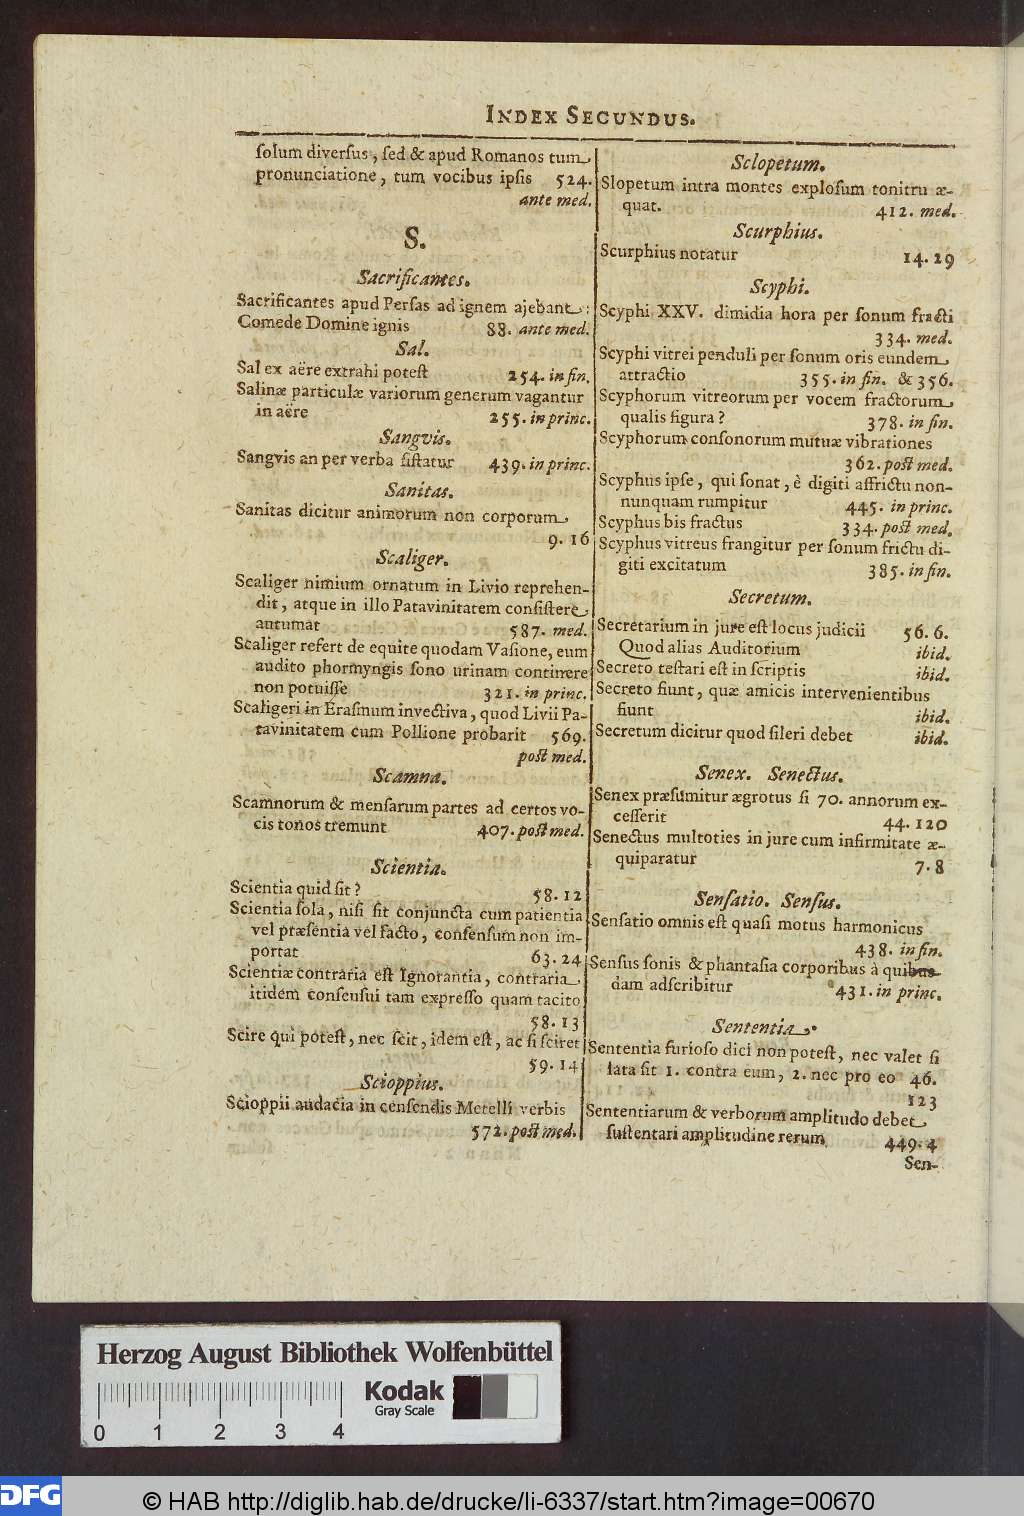 INDEX SECUNDUS.
ſolum diverſus, ſed & apud Romanos tum
pronunciatione, tum vocibus ipſis 524.
ante med.
S.
Sacrificantes.
Sacrificantes apud Perſas ad ignem ajebant:
Comede Domine ignis 88. ante med.
Sal.
Sal ex aëre extrahi poteſt 254. in fin.
Salinæ particulæ variorum generum vagantur
in aëre 255. in princ.
Sangvis.
Sangvis an per verba ſiſtatur 439. in princ.
Sanitas.
Sanitas dicitur animorum non corporum
9. 16
Scaliger.
Scaliger nimium ornatum in Livio reprehen-
dit, atque in illo Patavinitatem conſiſtere
autumat 587. med.
Scaliger refert de equite quodam Vaſione, eum
audito phormyngis ſono urinam continere
non potuiſſe 321. in princ.
Scaligeri in Eraſmum invectiva, quod Livii Pa-
tavinitatem cum Pollione probarit 569.
poſt med.
Scamna.
Scamnorum & menſarum partes ad certos vo-
cis tonos tremunt 407. poſt med.
Scientia.
Scientia quid ſit? 58. 12
Scientia ſola, niſi ſit conjuncta cum patientia
vel præſentia vel facto, conſenſum non im-
portat 63. 24
Scientiæ contraria eſt Ignorantia, contraria
itidem conſenſui tam expreſſo quam tacito
58. 13
Scire qui poteſt, nec ſcit, idem eſt, ac ſi ſciret
59. 14
Scioppius.
Scioppii audacia in cenſendis Metelli verbis
572. poſt med.
Sclopetum.
Slopetum intra montes exploſum tonitru æ-
quat. 412. med.
Scurphius.
Scurphius notatur 14. 29
Scyphi.
Scyphi XXV. dimidia hora per ſonum fracti
334. med.
Scyphi vitrei penduli per ſonum oris eundem
attractio 355. in fin. & 356.
Scyphorum vitreorum per vocem fractorum
qualis figura? 378. in fin.
Scyphorum conſonorum mutuæ vibrationes
362. poſt med.
Scyphus ipſe, qui ſonat, è digiti affrictu non-
nunquam rumpitur 445. in princ.
Scyphus bis fractus 334. poſt med.
Scyphus vitreus frangitur per ſonum frictu di-
giti excitatum 385. in fin.
Secretum.
Secretarium in jure eſt locus judicii 56. 6.
Quod alias Auditorium ibid.
Secreto teſtari eſt in ſcriptis ibid.
Secreto fiunt, quæ amicis intervenientibus
fiunt ibid.
Secretum dicitur quod ſileri debet ibid.
Senex. Senectus.
Senex præſumitur ægrotus ſi 70. annorum ex-
ceſſerit 44. 120
Senectus multoties in jure cum infirmitate æ-
quiparatur 7. 8
Senſatio. Senſus.
Senſatio omnis eſt quaſi motus harmonicus
438. in fin.
Senſus ſonis & phantaſia corporibus à quibus-
dam adſcribitur 431. in princ.
Sententia.
Sententia furioſo dici non poteſt, nec valet ſi
lata ſit 1. contra eum, 2. nec pro eo 46.
123
Sententiarum & verborum amplitudo debet
ſuſtentari amplitudine rerum 449. 4
Sen-
Herzog August Bibliothek Wolfenbüttel
Kodak
Gray Scale
0 1 2 3 4
DFG
© HAB http://diglib.hab.de/drucke/li-6337/start.htm?image=00670